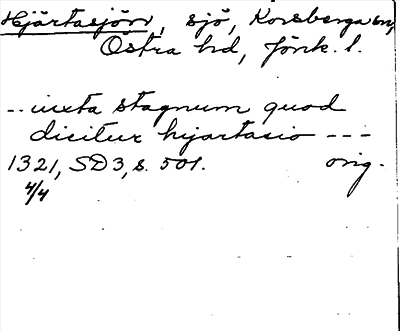 Hjärtasjön, sjö, Korsberga sn,
Östra hd, Jönk. l.
-- iuxta stagnum quod
dicitur hjartasio ---
1321, SD 3, s. 501. orig.
4/4